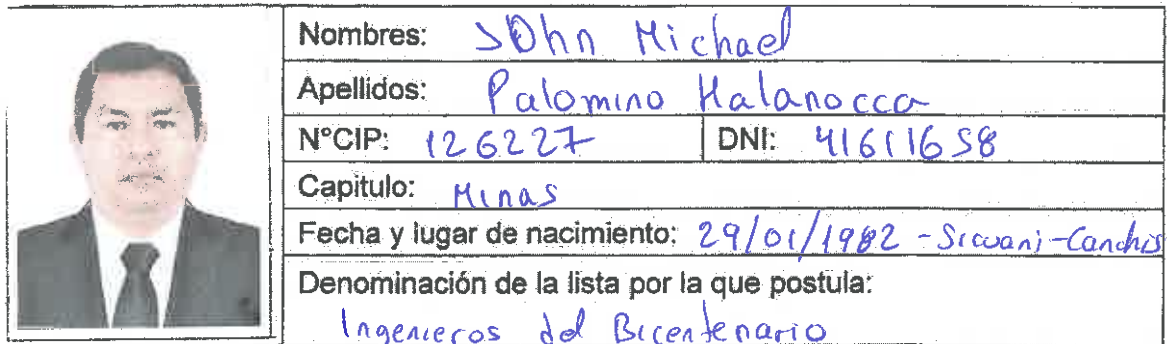 Nombres: JOhn Michael
Apellidos: Palomino Halanocca
N°CIP: 126227 DNI: 41611658
Capitulo: Minas
Fecha y lugar de nacimiento: 29/01/1982 - Sicuani - Canchis
Denominación de la lista por la que postula:
Ingenieros del Bicentenario